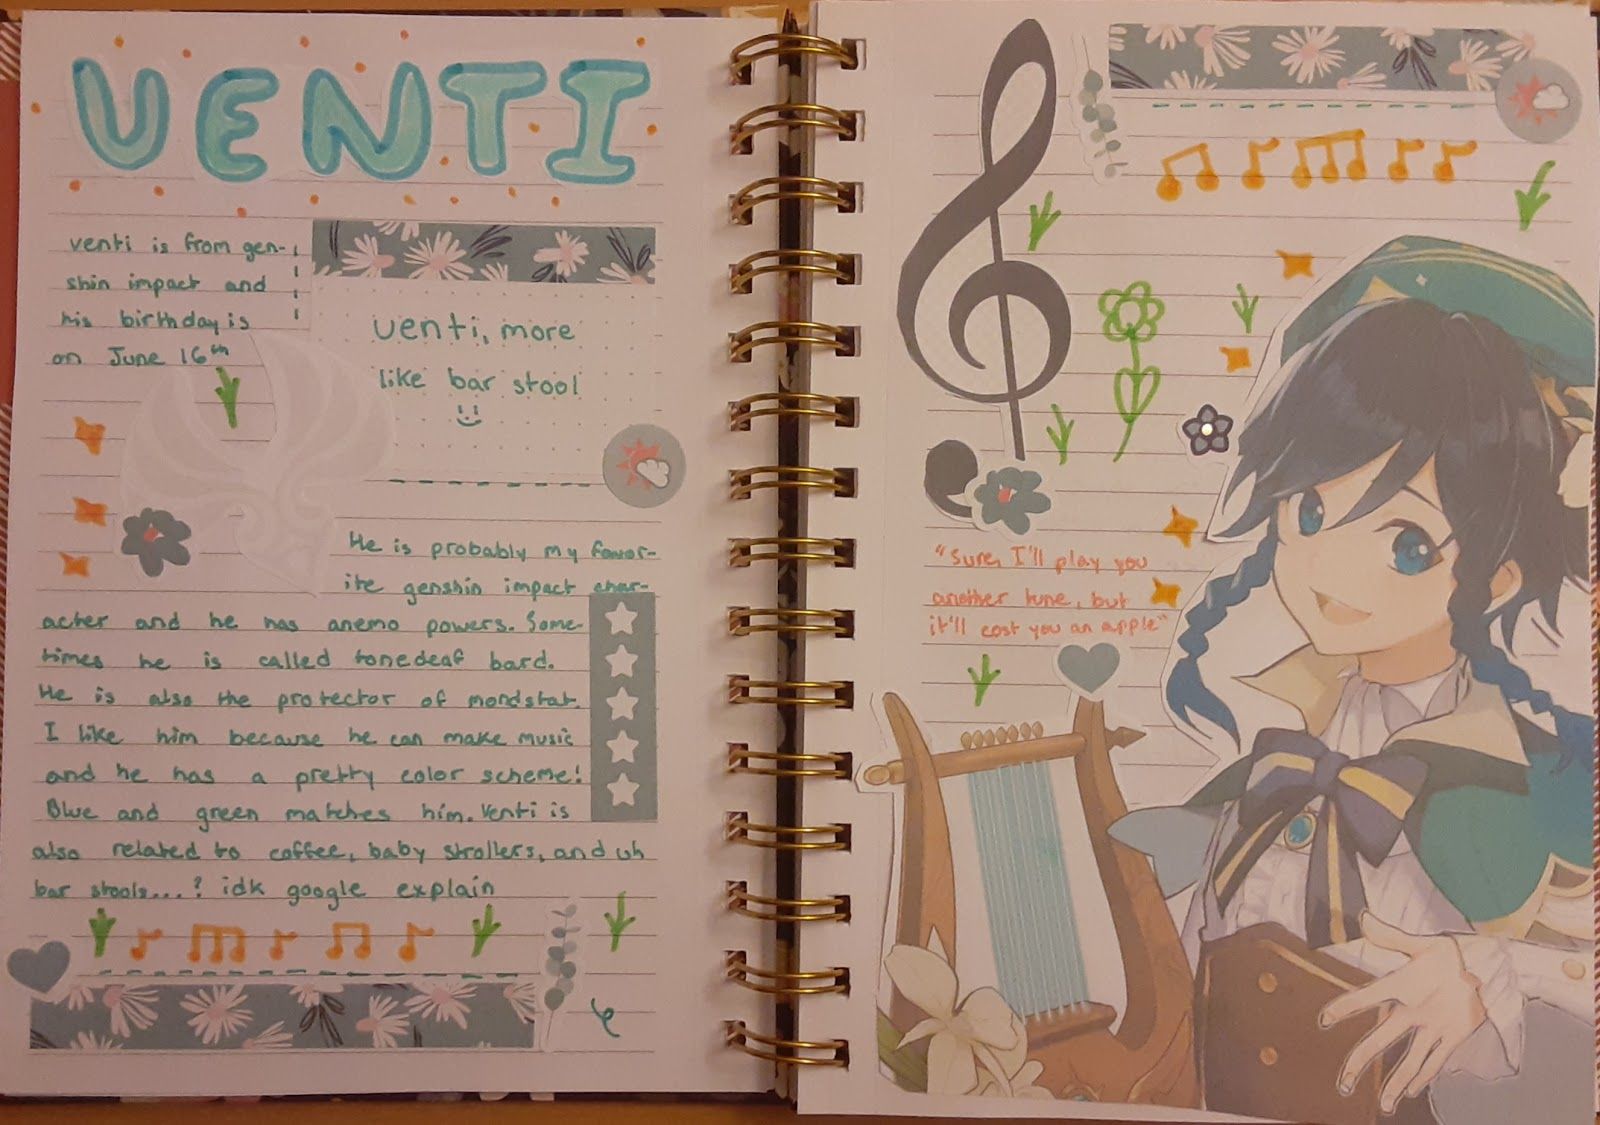 VENTI
venti is from gen-
shin impact and
his birthday is
on June 16th
venti, more
like bar stool
He is probably my favor-
ite genshin impact char-
acter and he has anemo powers. Some-
times he is called tonedeaf bard.
He is also the protector of mondstat.
I like him because he can make music
and he has a pretty color scheme!
Blue and green matches him. Venti is
also related to coffee, baby strollers, and uh
bar stools....? idk google explain
"Sure, I'll play you
another tune, but
it'll cost you an apple"